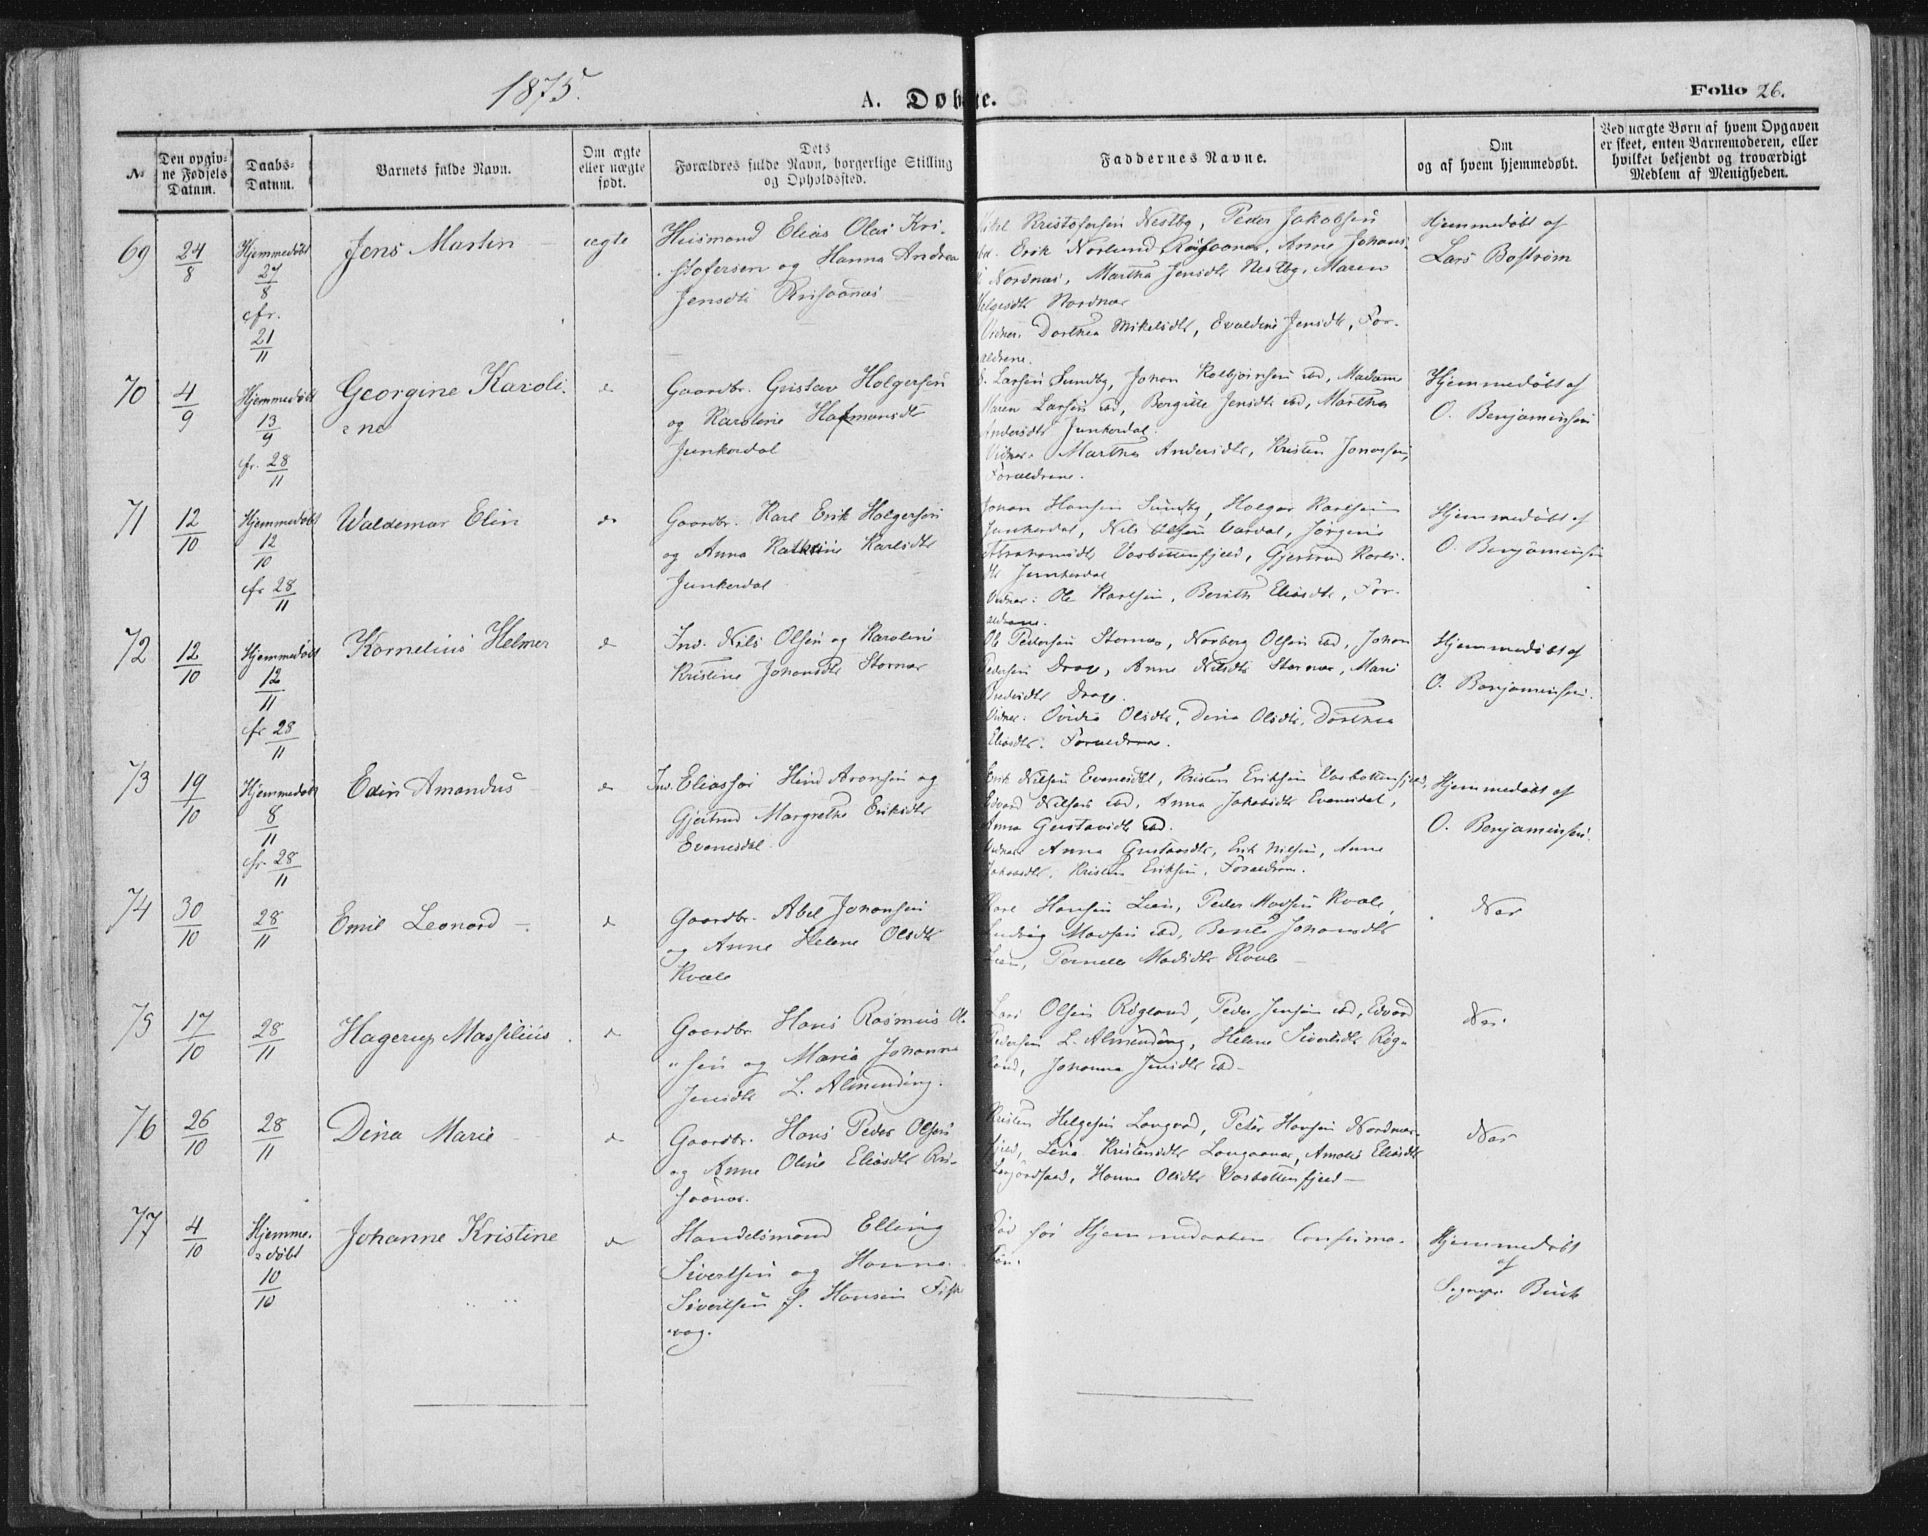 1875.
A. Døbte.
Folio 26.
No
Den opgivne Fødsels Datum.
Daabs-Datum.
Barnets fulde Navn.
Om ægte eller uægte født.
Dets Forældres fulde Navn, borgerlige Stilling og Opholdssted.
Faddernes Navne.
Om og af hvem hjemmedøbt.
Ved uægte Børn af hvem Opgaven er skeet, enten Barnemoderen, eller hvilket bekjendt og troværdigt Medlem af Menigheden.
69
24/8
Hjemmedøbt
27/8
cfr.
21/11
Jens Martin
ægte
Husmand Elias Olai Kri-
stofersen og Hanna Andrea
Jensdtr
Kristofersen Nestby, Peder Jakobsen
Erik Norlund, Anne Johans
Nordnæs, Martha Jensdtr Nestby, Maren
Nordnæs
Vidner. Dorthea Mikelsdtr, Evaldine Jensdtr, For-
ældrene.
Hjemmedøbt af
Lars Boström
70
4/9
Hjemmedøbt
13/9
cfr. 28/11
Georgine Karoli-
ne
do
Gaardbr. Gustav Holgersen
og Karoline Hofmansdtr
Junkerdal
Larsen Sundby, Johan Kolbjørnsen ibd, Madame
Maren Larsen ibd, Bergitte Jensdtr ibd, Martha
Andersdtr Junkerdal.
Vidner. Martha Andersdtr, Kristen Jonassen,
Forældrene.
Hjemmedøbt af
O. Benjaminsen
71
12/10
Hjemmedøbt
12/10
cfr 28/11
Waldemar Elin
do
Gaardbr. Karl Erik Holgersen
og Anna Kathrine Karlsdtr
Junkerdal
Johan Hansen Sundby, Holger Karlsen
Junkerdal, Nils Olsen, Jørgine
Abrahamsdtr Vasbottenfjeld, Gjertrud Karls-
dtr Junkerdal
Vidner: Ole Karlsen, Berith Eliasdtr, For-
ældrene.
Hjemmedøbt af
O. Benjaminsen
72
12/10
Hjemmedøbt
12/11
cfr 28/11
Kornelius Helmer
do
Ind. Nils Olsen og Karoline
Kristine Johansdtr Stornæs
Ole Pedersen Stornæs, Norberg Olsen ibd, Johan
Pedersen Drage, Anne Nilsdtr Stornæs, Mari
Drage.
Vidner: Ovidia Olsdtr, Dina Olsdtr, Dorthea
Eliasdtr. Forældrene.
Hjemmedøbt af
O. Benjaminsen.
73
19/10
Hjemmedøbt
8/11
cfr. 28/11
Edin Amandus
do
Ind. Aronsen og
Gjertrud Margrethe Eriksdtr
Evenesdal.
Erik Nilsen Evenesdal, Kristen Eriksen Vasbottenfjeld,
Edvard Nilsen ibd, Anna Jakobsdtr Evenesdal,
Anna Gustavsdtr ibd.
Vidner Anna Gustavsdtr, Erik Nilsen, Anne
Jakobsdtr, Kristen Eriksen, Forældrene.
Hjemmedøbt af
O. Benjaminsen.
74
30/10
28/11
Emil Leonard
do
Gaardbr. Abel Johansen
og Anne Helene Olsdtr
Kvæle
Hansen Lien, Peder Madsen Kvæle,
Ludvig Madsen ibd, Berit Johansdtr
Lien, Pernille Madsdtr Kvæle
Nei
75
17/10
28/11
Hagerup Massilius
do
Gaardbr. Hans Rasmus Ol-
sen og Maria Johanna
Jensdtr L. Almending.
Lars Olsen Røgland, Peder Jensen ibd, Edvard
Pedersen L. Almending, Helene Sivertsdtr Røg-
land, Johanna Jensdtr ibd
Nei
76
26/10
28/11
Dina Marie
do
Gaardbr. Hans Peder Olsen
og Anne Oline Eliasdtr
Kristen Helgesen, Peter Hansen Nordnæs-
fjeld, Lina Kristensdtr, Amalie Eliasdtr
Hanna Olsdtr Vasbottenfjeld
Nei
77
4/10
Hjemme-
døbt
10/10
Johanne Kristine
do
Handelsmand Elling
Sivertsen og Hanna
Sivertsen f. Hansen Fisk-
vaag.
Død før Hjemmedaabens Confirma-
tion.
Hjemmedøbt
af
Sognepr. Buck